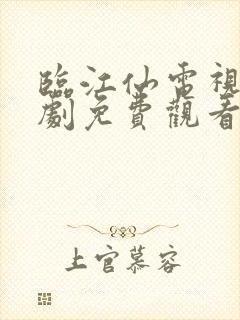 臨江仙電視
劇免費觀看
上官慕容